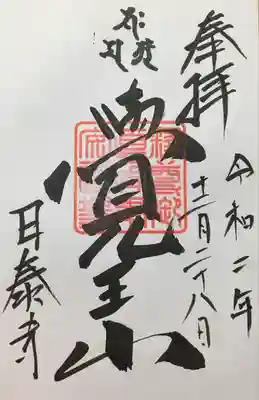 奉拝
令和二年
十二月二十八日
覺王山
日泰寺